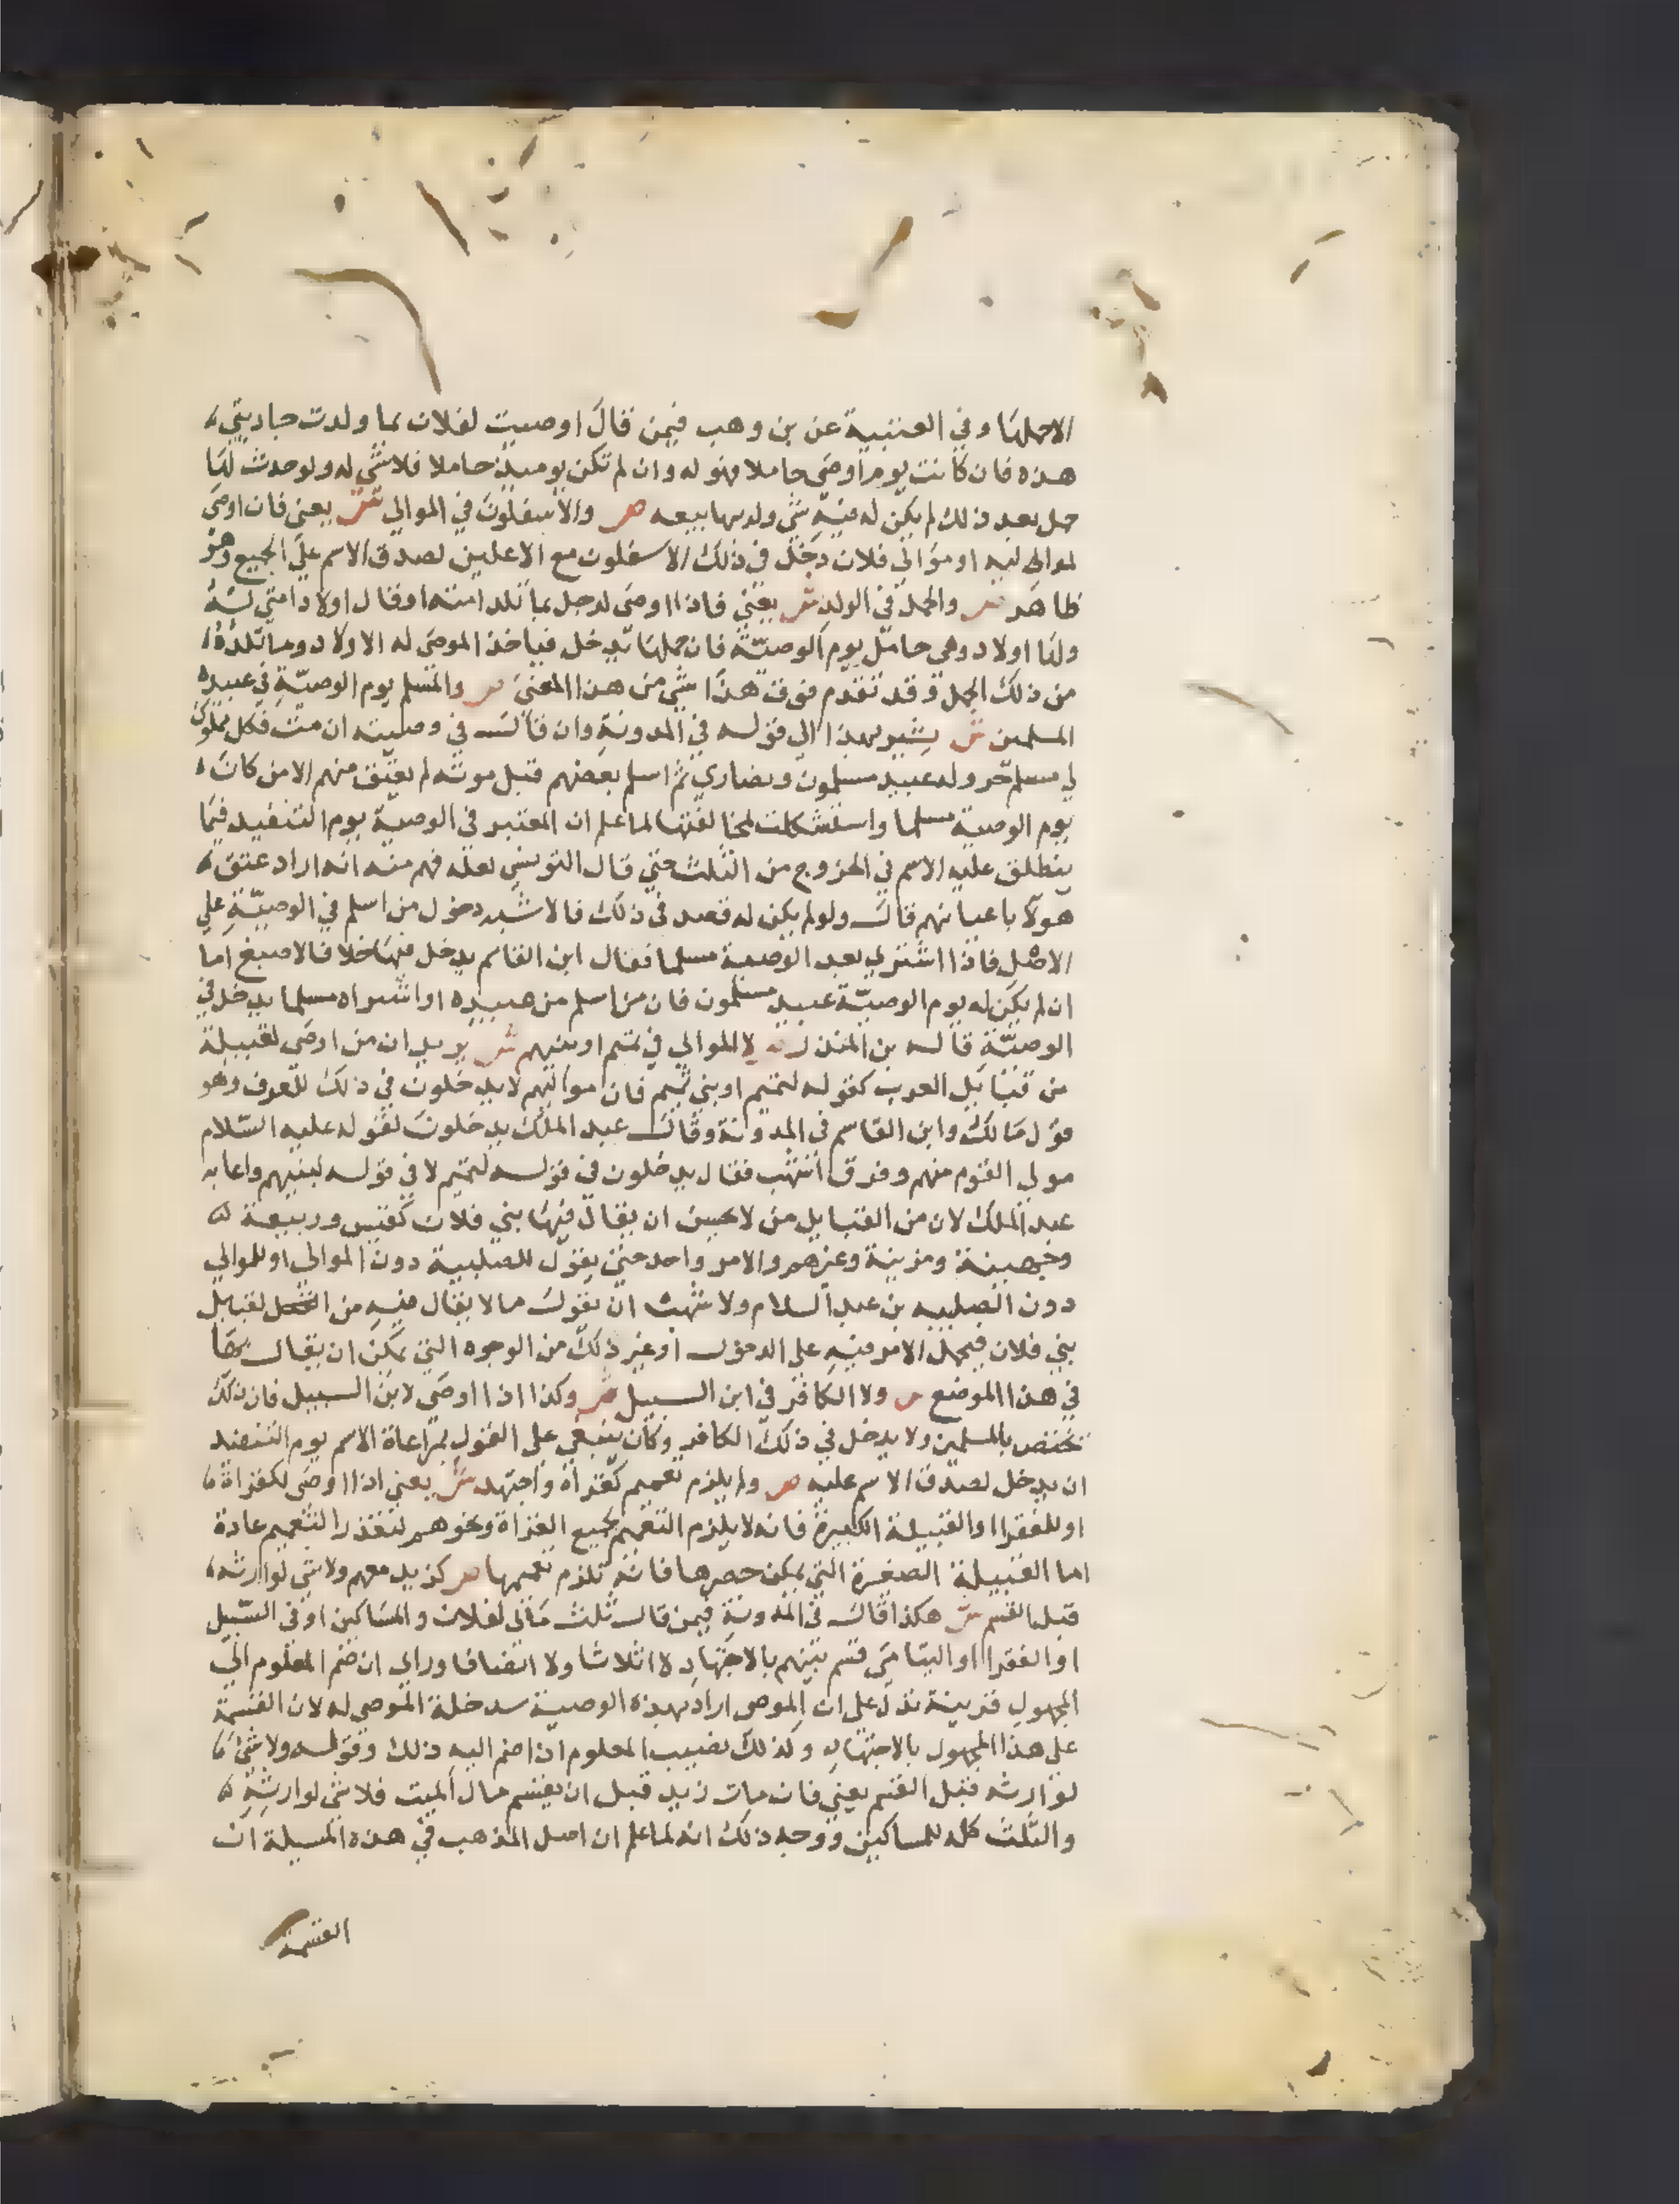 الاحملها وفي العتبية عن بن وهب فيمن قال اوصيت لفلان بما ولدت جاريتي
هذه فان كانت يوم اوصي حاملا فهو له وان لم تكن يوميذ حاملا فلا شي له ولو حدث لها
حمل بعد ذلك لم يكن له فيه شي ولد بيعه ص والاسفلون في الموالي ش يعني فان اوصي
لموالي او موالي فلان دخل في ذلك الاسفلون مع الاعلين لصدق الاسم علي الجميع وهو
ظاهر ص والحمل في الولد ش يعني فاذا اوصي لرجل بما تلد امته او قال اولاد امتي
ولها اولاد وهي حامل يوم الوصية فان حملها يدخل فياخذ الموصي له الاولاد وما تلده
من ذلك الحمل وقد تقدم فوق هذا شي من هذا المعني ص والمسلم يوم الوصية في عبيده
المسلمين ش يشير بهذا الي قوله في المدونة وان قال في وصيته ان مت فكل مملوك
لي مسلم حر وله عبيد مسلمون ونصاري ثم اسلم بعضهم قبل موته لم يعتق منهم الا من كان
يوم الوصية مسلما واستشكلت لمخالفتها لما علم ان المعتبر في الوصية يوم التنفيذ فيما
ينطلق عليه الاسم في الخروج من الثلث حتي قال التونسي لعله فهم منه انه اراد عتق
هولا باعيانهم قال ولو لم يكن له قصد في ذلك فالاشبه دخول من اسلم في الوصية علي
الاصل فاذا اشتري بعد الوصية مسلما فقال ابن القاسم يدخل فيها خلافا لاصبغ اما
ان لم يكن له يوم الوصية عبيد مسلمون فان من اسلم من عبيده او اشتراه مسلما يدخل في
الوصية قاله بن المنذر ص لا الموالي في تميم او بنيهم ش يريد ان من اوصي لقبيلة
من قبايل العرب كقوله لتميم او بني تميم فان مواليهم لا يدخلون في ذلك للعرف وهو
قول مالك وابن القاسم في المدونة وقال عبد الملك يدخلون لقوله عليه السلام
مولي القوم منهم وفرق اشهب فقال يدخلون في قوله لتميم لا في قوله لبنيهم واعابه
عبد الملك لان من القبايل من لا يحسن ان يقال فيها بني فلان كقيس وربيعة
وجهينة ومزينة وغيرهم والامر واحد حتي يقول للصلبية دون الموالي او للموالي
دون الصلبيه بن عبد السلام ولا شهب ان يقول ما لا يقال فيه من القبايل
بني فلان فيحمل الامر فيه علي الدخول او غير ذلك من الوجوه التي يمكن ان يقال بها
في هذا الموضع ص ولا الكافر في ابن السبيل ش وكذا اذا اوصي لابن السبيل فان ذلك
يختص بالمسلمين ولا يدخل في ذلك الكافر وكان ينبغي علي القول بمراعاة الاسم يوم التنفيذ
ان يدخل لصدق الاسم عليه ص ولم يلزم تعميم كغزاة واجتهد ش يعني اذا اوصي لكغزاة
او للفقرا او القبيلة الكبيرة فانه لا يلزم التعميم لجميع الغزاة ونحوهم لتعذر التعميم عادة
اما القبيلة الصغيرة التي يمكن حصرها فانه تلزم تعميمها ص كزيد معهم ولا شي لوارثه
قبل القسم ش هكذا قال في المدونة فيمن قال ثلث مالي لفلان والمساكين او في السبيل
او الفقرا او اليتامي قسم بينهم بالاجتهاد لا اثلاثا ولا انصافا وراي ان ضم المعلوم الي
المجهول قرينة تدل علي ان الموصي اراد بهذه الوصية سد خلة الموصي له لان القسمة
علي هذا المجهول بالاجتهاد وكذلك نصيب المعلوم اذا ضم اليه ذلك وقوله ولا شي
لوارثه قبل القسم يعني فان مات زيد قبل ان يقسم مال الميت فلا شي لوارثه
والثلث كله للمساكين ووجه ذلك انه لما علم ان اصل المذهب في هذه المسيلة ان
القسمة